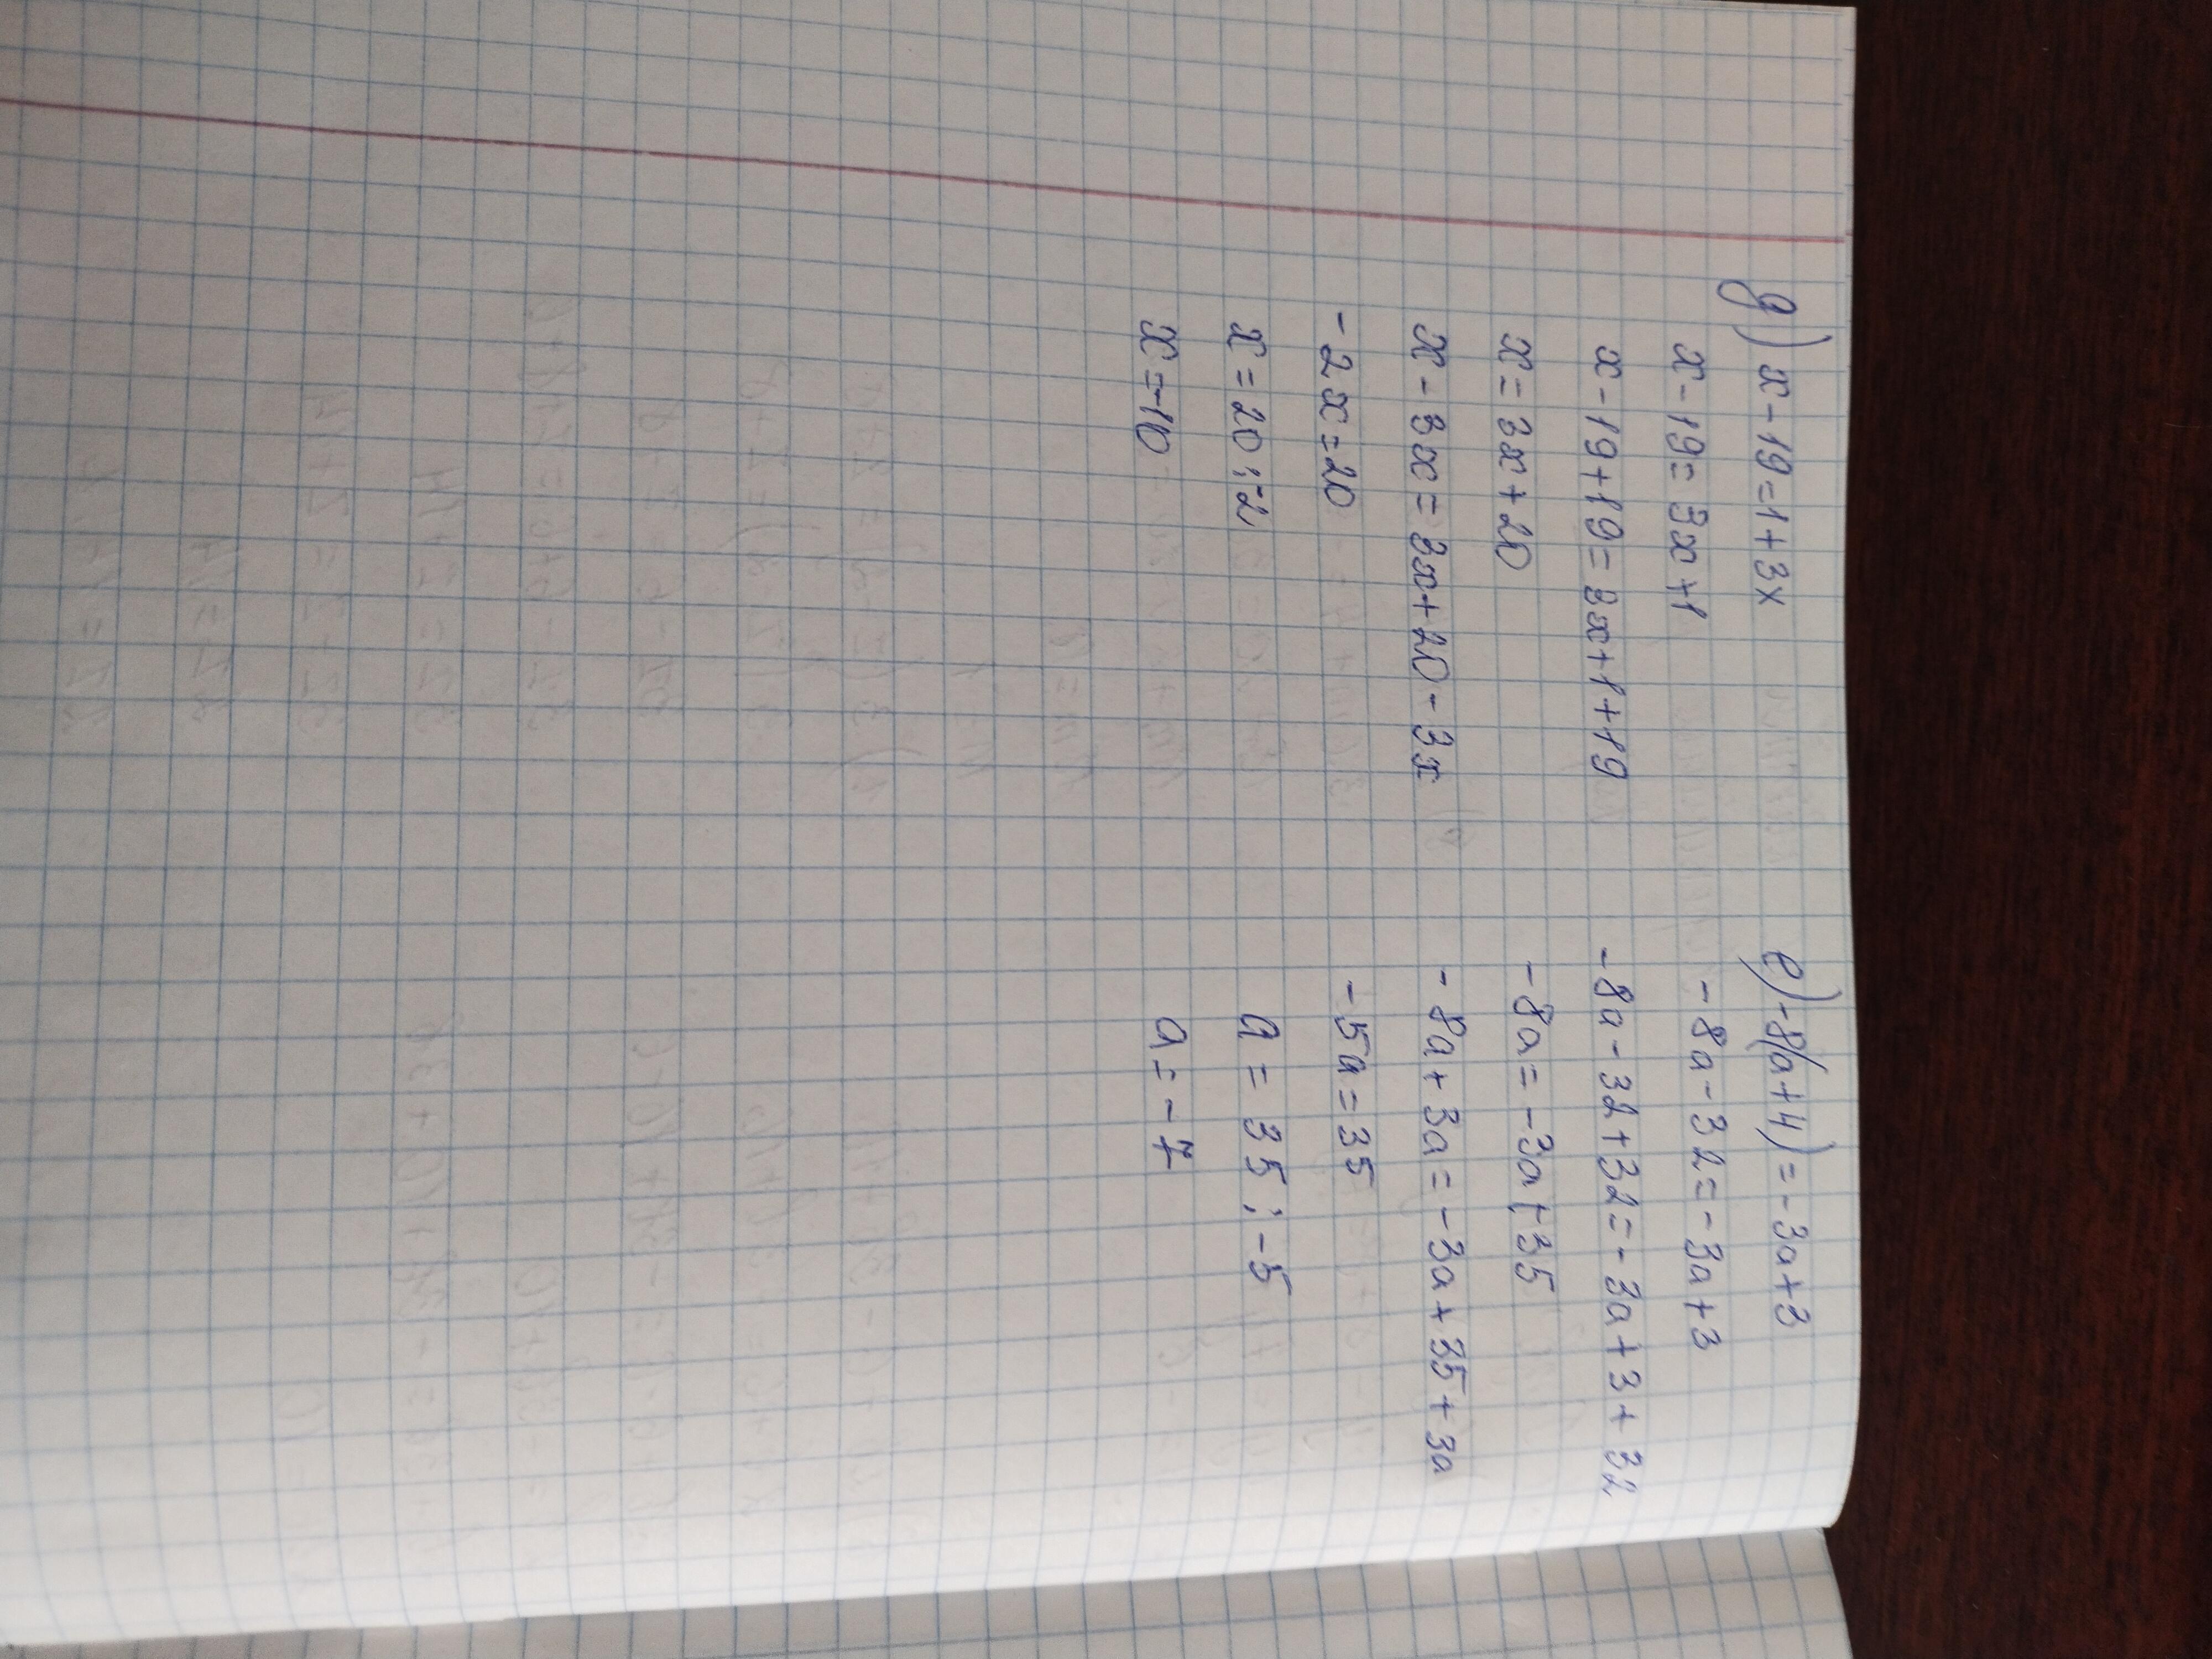 д) x - 19 = 1 + 3x
x - 19 = 3x + 1
x - 19 + 19 = 3x + 1 + 19
x = 3x + 20
x - 3x = 3x + 20 - 3x
- 2x = 20
x = 20 : -2
x = -10
е) -8(a + 4) = -3a + 3
- 8a - 32 = -3a + 3
-8a - 32 + 32 = -3a + 3 + 32
-8a = -3a + 35
- 8a + 3a = -3a + 35 + 3a
- 5a = 35
a = 35 : -5
a = -7